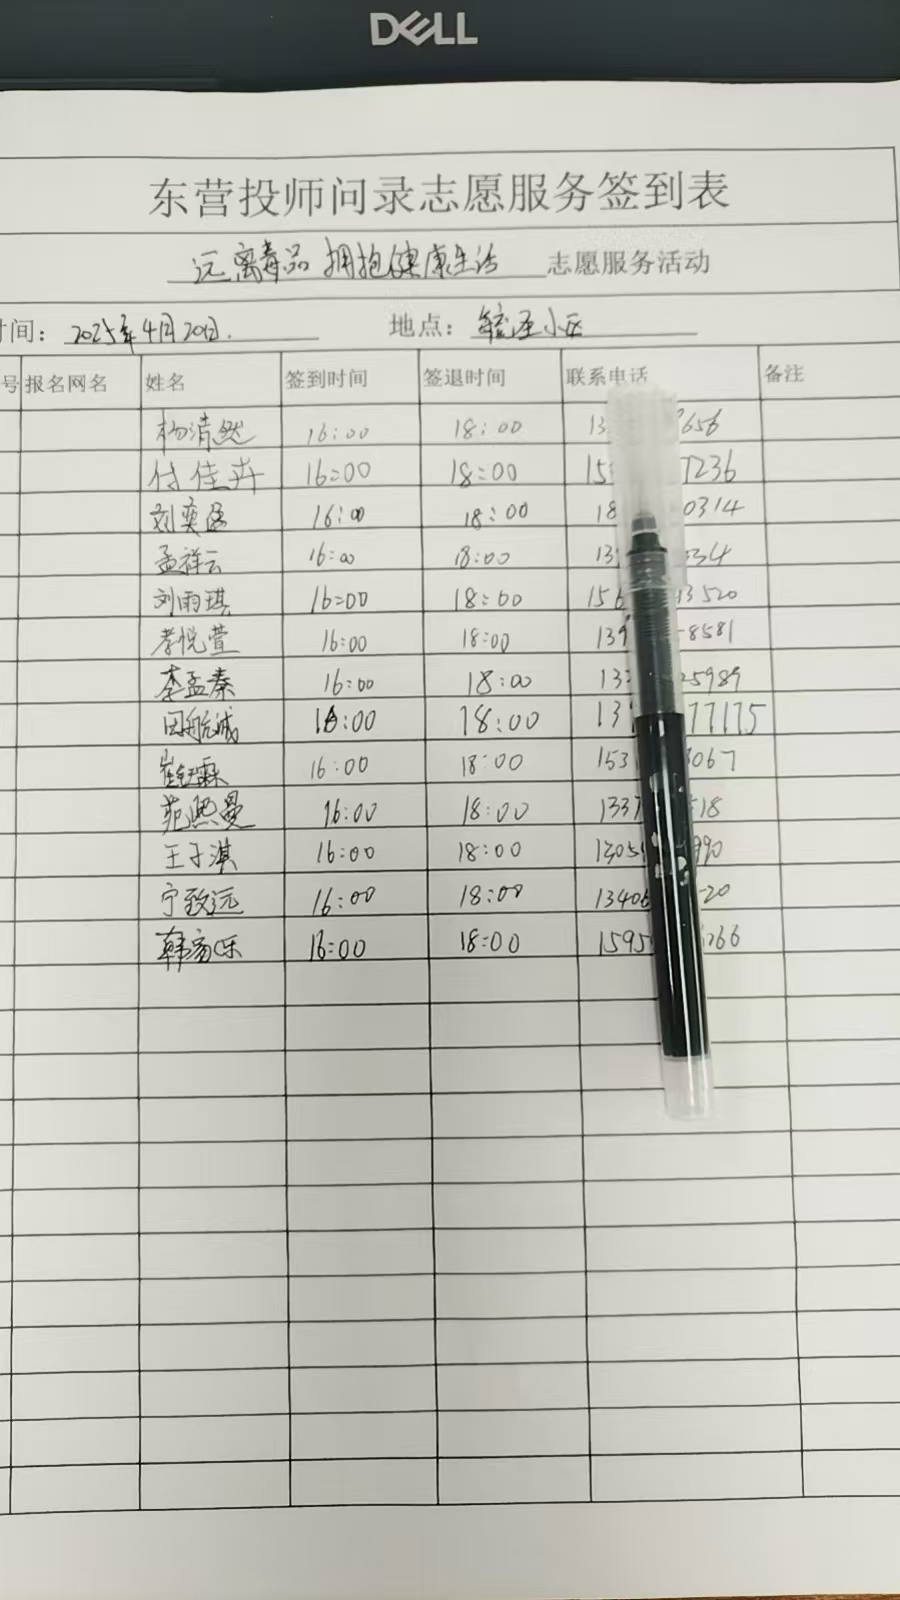 DELL
东营投师问录志愿服务签到表
远离毒品 拥抱健康生活 志愿服务活动
时间: 2025年4月20日. 地点: 小区
号 报名网名 姓名 签到时间 签退时间 联系电话 备注
杨清然 16:00 18:00 13 3656
付佳卉 16:00 18:00 15 7236
刘奕 16:00 18:00 18 0314
孟祥云 16:00 18:00 13 334
刘雨琪 16:00 18:00 156 13520
李悦萱 16:00 18:00 139 -8581
李孟秦 16:00 18:00 13 25989
田航诚 16:00 18:00 13 77175
崔钰霖 16:00 18:00 153 3067
苑熙曼 16:00 18:00 1337 518
王子淇 16:00 18:00 1305 990
宁致远 16:00 18:00 13406 -20
韩家乐 16:00 18:00 1595 266